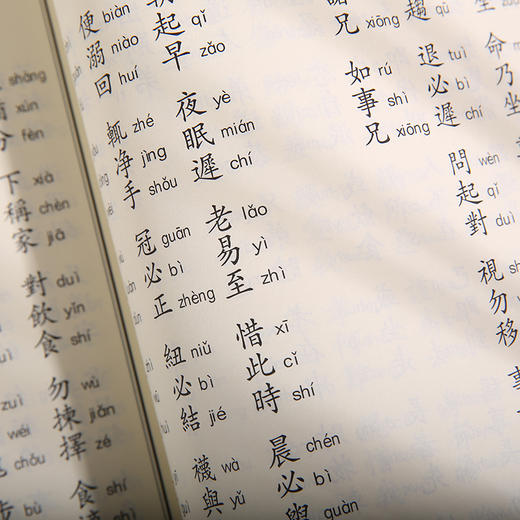 坐
命 乃 坐
趨 qū
退 tuì 必 bì 遲 chí
問 wèn 起 qǐ 對 duì
視 勿 移
事
兄 xiōng
如 rú 事 shì 兄 xiōng
起 qǐ 早 zǎo
夜 yè 眠 mián 遲 chí
老 lǎo 易 yì 至 zhì
惜 xī 此 cǐ 時 shí
晨 chén 必 bì guàn
便 biàn 溺 niào 回 huí
輒 zhé 净 jìng 手 shǒu
冠 guān 必 bì 正 zhèng
紐 niǔ 必 bì 結 jié
襪 wà 與 yǔ
shàng xùn 分 fèn
下 xià 稱 chèn 家 jiā
對 duì 飲 yǐn 食 shí
勿 wù 揀 jiǎn 擇 zé
食 shí
zuì wéi chǒu
bù